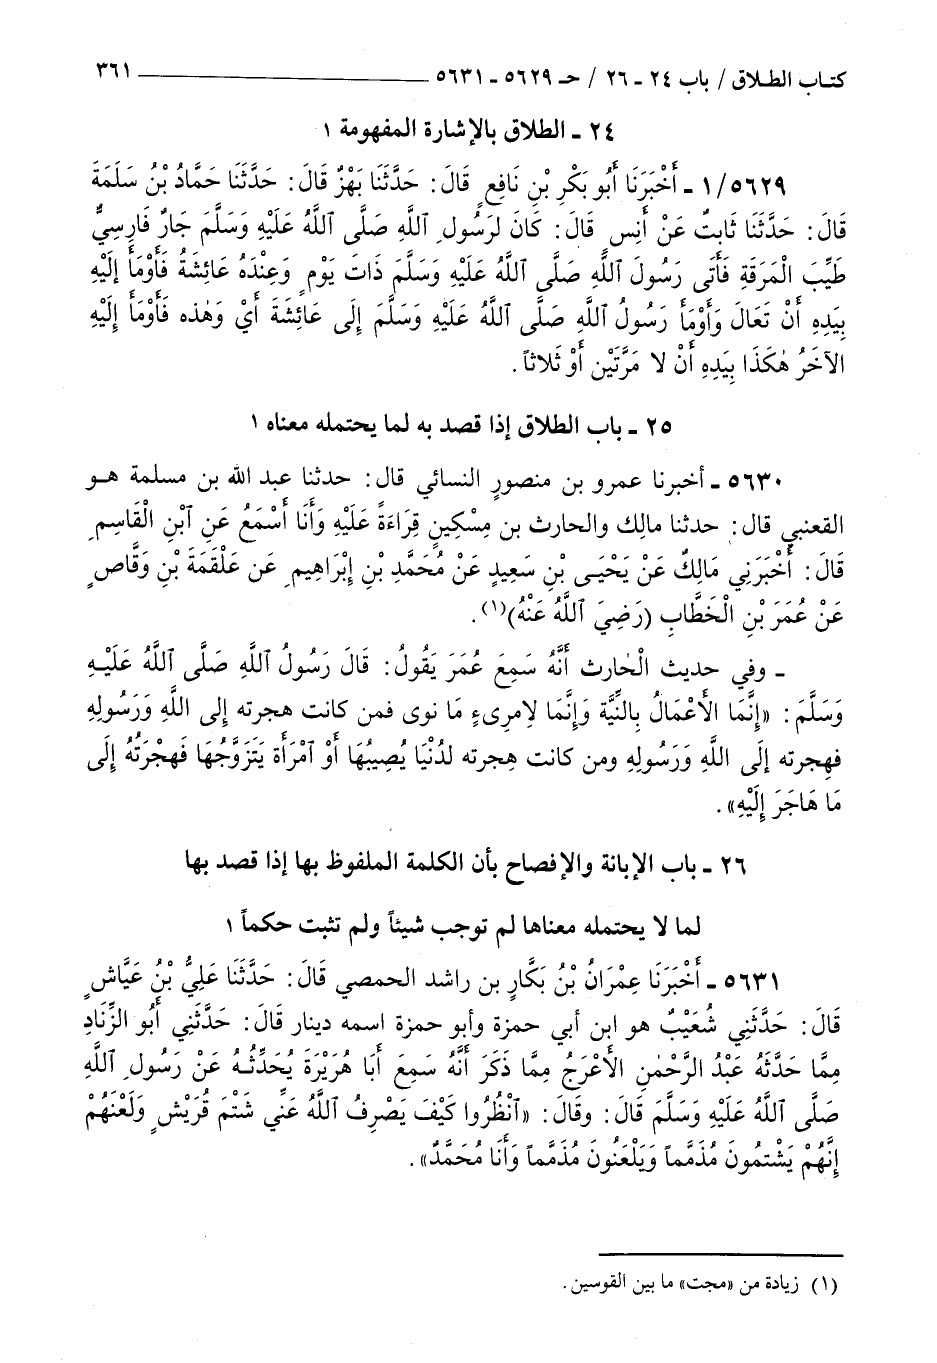 كتاب الطلاق / باب ٢٤ ـ ٢٦ / حـ ٥٦٢٩ ـ ٥٦٣١ ٣٦١
٢٤ ـ الطلاق بالإشارة المفهومة ١
١/٥٦٢٩ ـ أَخْبَرَنَا أَبُو بَكْرِ بْنِ نَافِعٍ قَالَ: حَدَّثَنَا بَهْزٌ قَالَ: حَدَّثَنَا حَمَّادُ بْنُ سَلَمَةَ
قَالَ: حَدَّثَنَا ثَابِتٌ عَنْ أَنِسٍ قَالَ: كَانَ لِرَسُولِ ٱللَّهِ صَلَّى ٱللَّهُ عَلَيْهِ وَسَلَّمَ جَارٌ فَارِسِيٌّ
طَيِّبَ الْمَرَقَةِ فَأَتَى رَسُولَ ٱللَّهِ صَلَّى ٱللَّهُ عَلَيْهِ وَسَلَّمَ ذَاتَ يَوْمٍ وَعِنْدَهُ عَائِشَةُ فَأَوْمَأَ إِلَيْهِ
بِيَدِهِ أَنْ تَعَالَ وَأَوْمَأَ رَسُولُ ٱللَّهِ صَلَّى ٱللَّهُ عَلَيْهِ وَسَلَّمَ إِلَى عَائِشَةَ أَيْ وَهٰذه فَأَوْمَأَ إِلَيْهِ
الآخَرُ هٰكَذَا بِيَدِهِ أَنْ لا مَرَّتَيْنِ أَوْ ثَلاثاً.
٢٥ ـ باب الطلاق إذا قصد به لما يحتمله معناه ١
٥٦٣٠ ـ أخبرنا عمرو بن منصورٍ النسائي قال: حدثنا عبد الله بن مسلمة هـو
القعنبي قال: حدثنا مالك والحارث بن مِسْكينٍ قِرَاءَةً عَلَيْهِ وَأَنَا أَسْمَعُ عَنِ ٱبْنِ الْقَاسِمِ
قَالَ: أَخْبَرَنِي مَالِكٌ عَنْ يَحْيَـى بْنِ سَعِيدٍ عَنْ مُحَمَّدِ بْنِ إِبْرَاهِيمَ عَن عَلْقَمَةَ بْنِ وَقَّاصٍ
عَنْ عُمَرَ بْنِ الْخَطَّابِ (رَضِيَ ٱللَّهُ عَنْهُ)(١).
ـ وفي حديث الْحَارث أَنَّهُ سَمِعَ عُمَرَ يَقُولُ: قَالَ رَسُولُ ٱللَّهِ صَلَّى ٱللَّهُ عَلَيْـهِ
وَسَلَّمَ: «إِنَّمَا الأَعْمَالُ بِالنِّيَّةِ وَإِنَّمَا لِامِرِىءٍ مَا نوى فمن كانت هجرته إلى اللَّهِ وَرَسُولِهِ
فهجرته إلَى اللَّهِ وَرَسُولِهِ ومن كانت هِجرته لدُنْيَا يُصِيبُهَا أَوْ ٱمْرَأَةً يَتَزَوَّجُهَا فَهِجْرَتُهُ إِلَى
مَا هَاجَرَ إِلَيْهِ».
٢٦ ـ باب الإبانة والإفصاح بأن الكلمة الملفوظ بها إذا قصد بها
لما لا يحتمله معناها لم توجب شيئاً ولم تثبت حكماً ١
٥٦٣١ ـ أَخْبَرَنَا عِمْرَانُ بْنُ بَكَّارِ بن راشد الحمصي قَالَ: حَدَّثَنَا عَلِيُّ بْنُ عَيَّاشٍ
قَالَ: حَدَّثَنِي شُعَيْبٌ هو ابن أبي حمزة وأبو حمزة اسمه دينار قَالَ: حَدَّثَنِي أَبُو الزِّنَادِ
مِمَّا حَدَّثَهُ عَبْدُ الرَّحْمٰنِ الأَعْرَجُ مِمَّا ذَكَرَ أَنَّهُ سَمِعَ أَبَا هُرَيْرَةَ يُحَدِّثُـهُ عَنْ رَسُولِ ٱللَّهِ
صَلَّى ٱللَّهُ عَلَيْهِ وَسَلَّمَ قَالَ: وقَالَ: «ٱنْظُرُوا كَيْفَ يَصْرِفُ ٱللَّهُ عَنِّي شَتْمَ قُرَيْشٍ وَلَعْنَهُمْ
إِنَّهُمْ يَشْتِمُونَ مُذَمَّماً وَيَلْعَنُونَ مُذَمَّماً وَأَنَا مُحَمَّدٌ».
(١) زيادة من «مجت» ما بين القوسين.